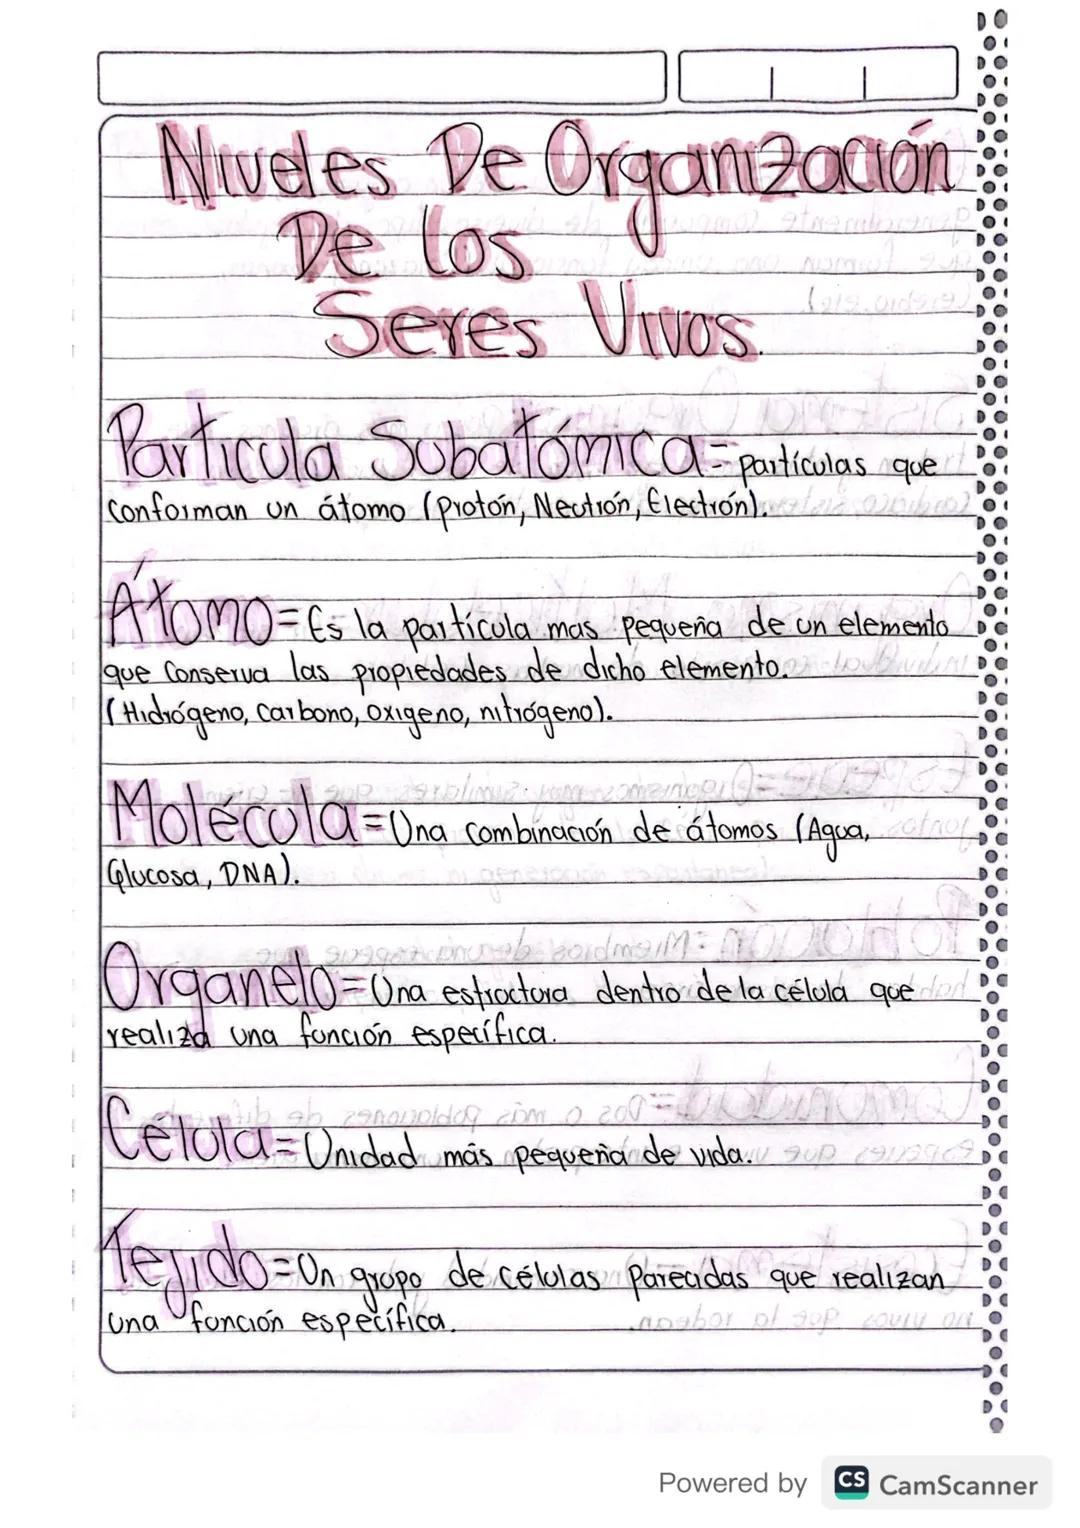 Niveles De Organización
De los
Seres Vivos.
Particula Subatómica= partículas que
conforman un átomo (Protón, Neutrón, Electrón).
Átomo= Es la partícula mas pequeña de un elemento
que Conserva las propiedades de dicho elemento.
(Hidrógeno, Carbono, oxigeno, nitrógeno).
Molécula= Una combinación de átomos (Agua,
Glucosa, DNA).
Organelo= Una estructura dentro de la célula que
realiza una función específica.
Célula= Unidad más pequeña de vida.
Tejido= Un grupo de células Parecidas que realizan
una función específica.
Powered by CS CamScanner